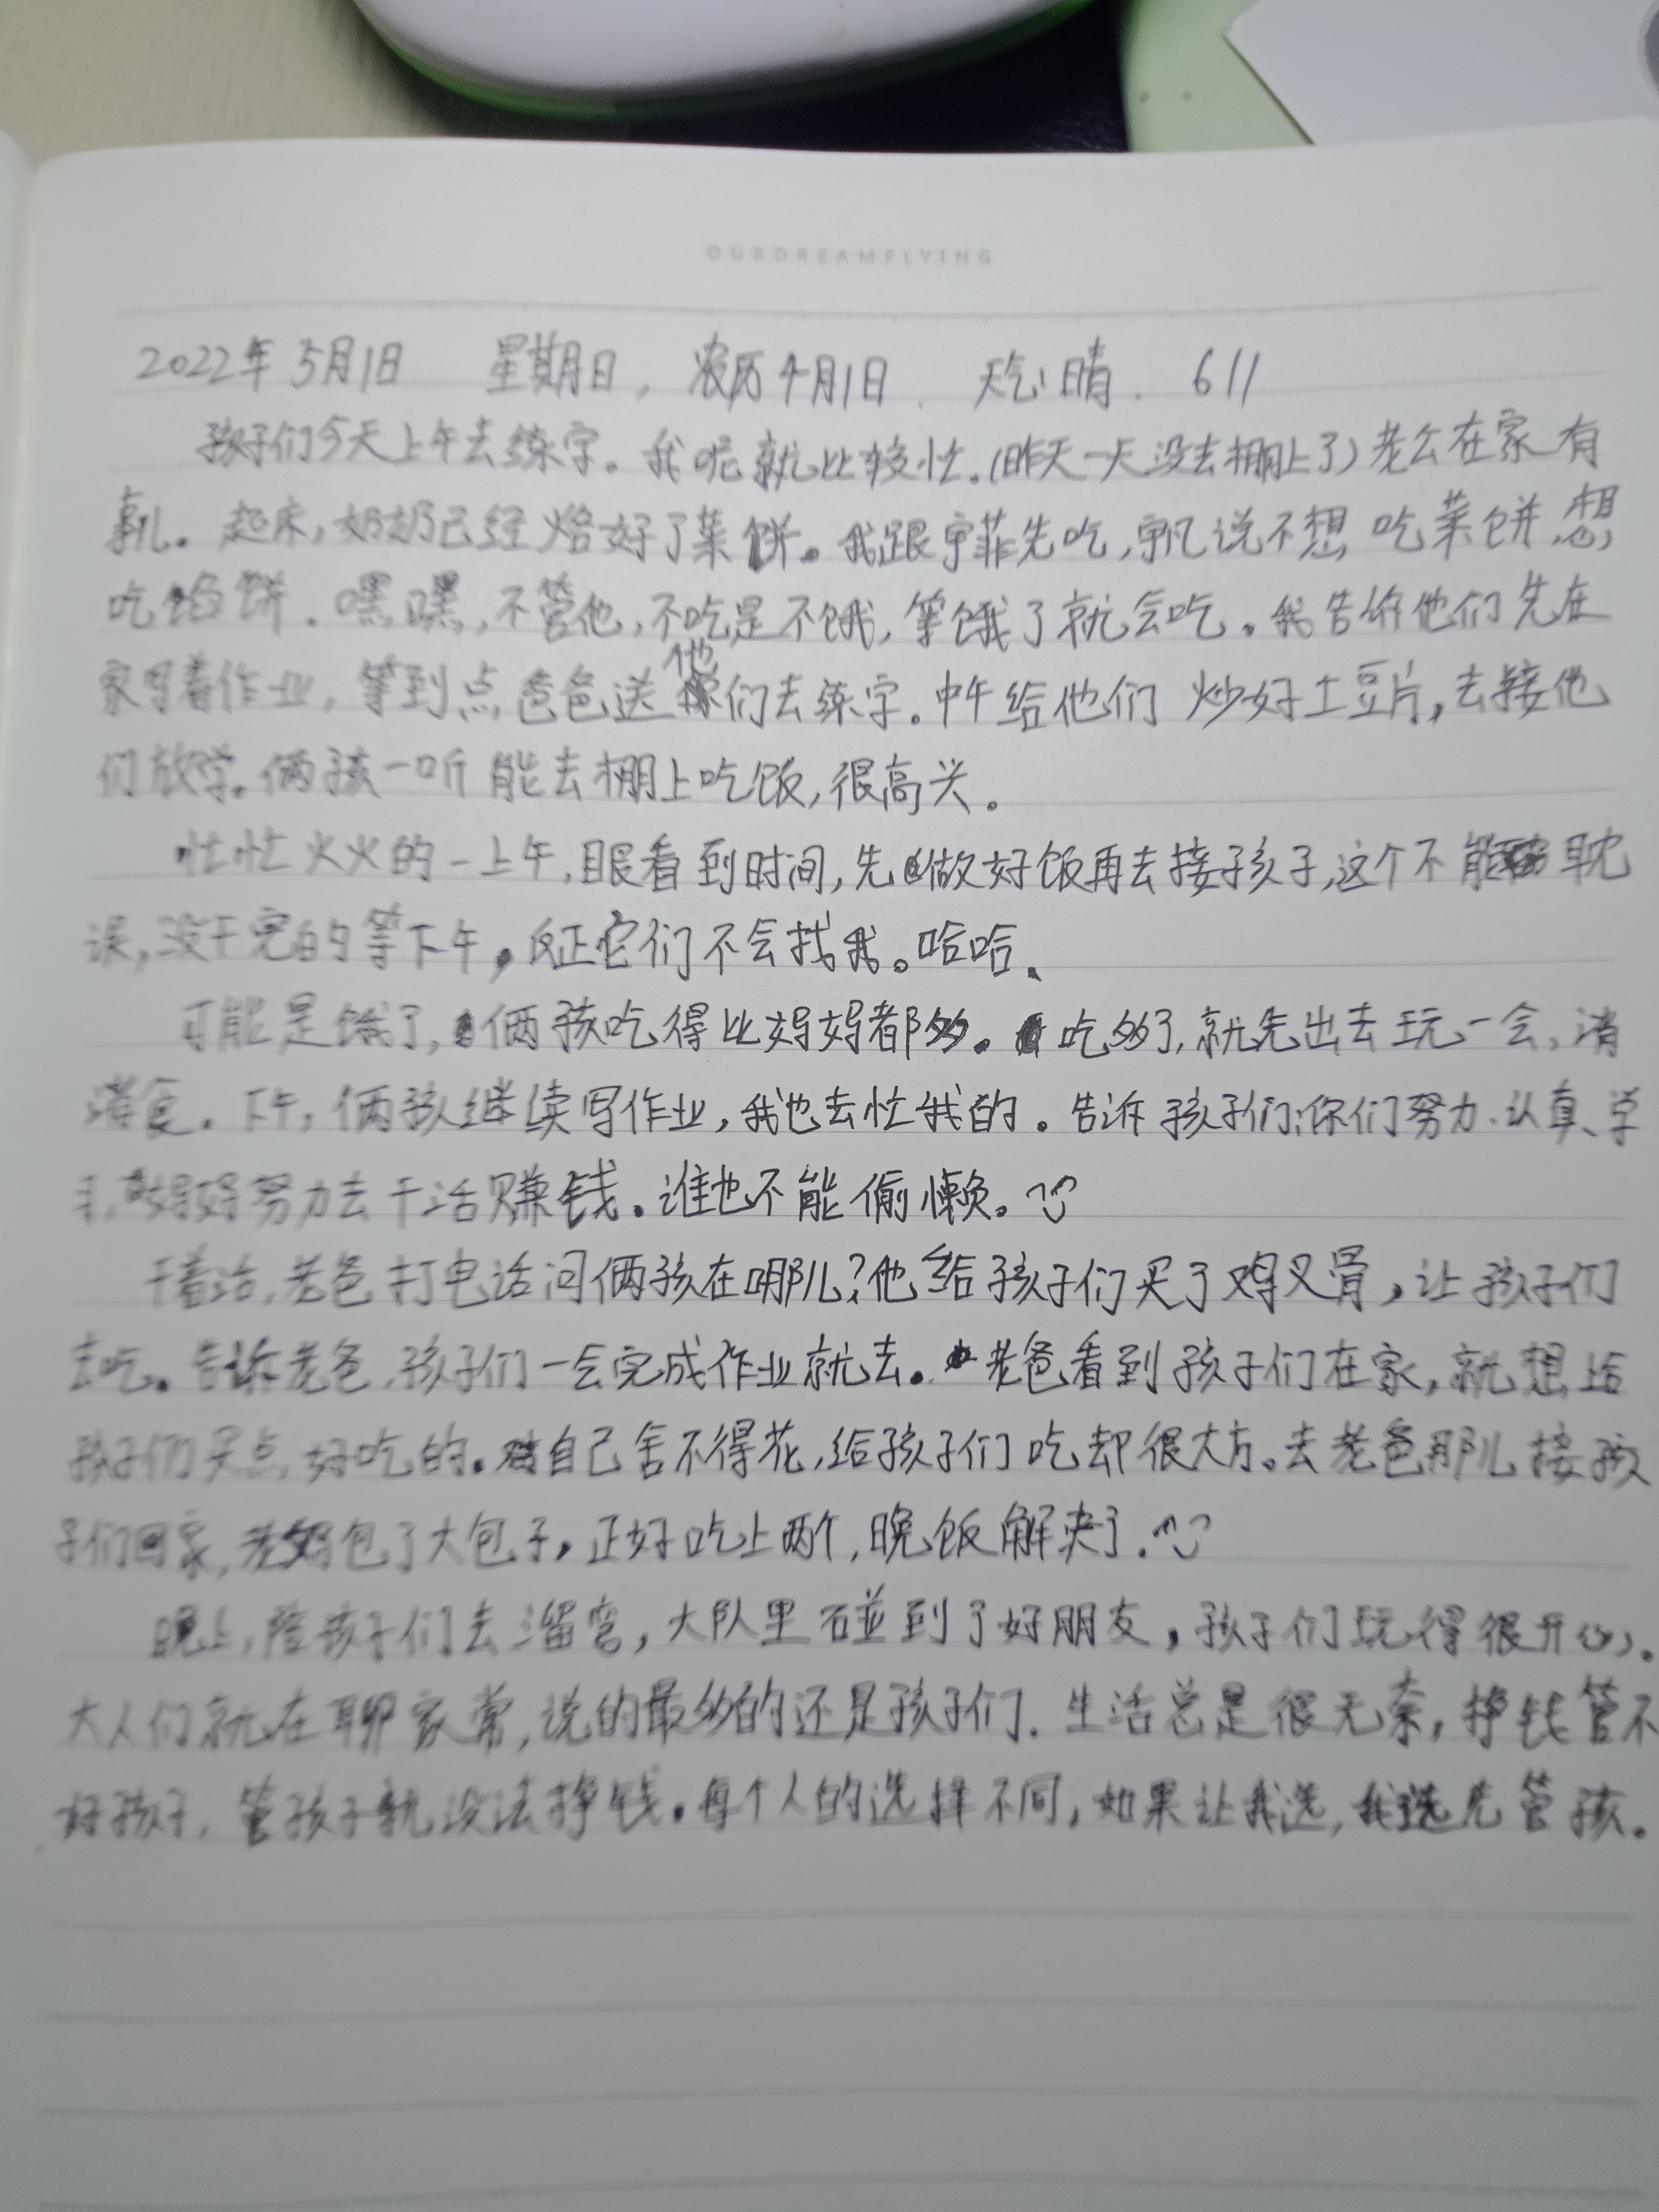 OURDREAMFLYING
2022年5月1日 星期日, 农历4月1日. 天气:晴. 611
孩子们今天上午去练字。我呢就比较忙.(昨天一天没去棚上了)老公在家有
事儿。起床,奶奶已经烙好了菜饼。我跟宇菲先吃,宇凡说不想吃菜饼,想
吃馅饼.嘿嘿,不管他,不吃是不饿,等饿了就会吃。我告诉他们先在
家写着作业,等到点爸爸送他们去练字。中午给他们炒好土豆片,去接他
们放学。俩孩一听能去棚上吃饭,很高兴。
忙忙火火的一上午,眼看到时间,先做好饭再去接子孩子,这个不能耽
误,没干完的等下午,反正它们不会找我。哈哈、
可能是饿了,俩孩吃得比妈妈都多。吃多了,就先出去玩一会,消
消食。下午,俩孩继续写作业,我也去忙我的。告诉孩子们:你们努力.认真、学
习,妈妈努力去干活赚钱。谁也不能偷懒。
干着活,老爸打电话问俩孩在哪儿?他给孩子们买了鸡叉骨,让孩子们
去吃。告诉老爸,孩子们一会完成作业就去。老爸看到孩子们在家,就想给
孩子们买点好吃的。自己舍不得花,给孩子们吃却很大方。去老爸那儿接孩
子们回家,老妈包了大包子,正好吃上两个,晚饭解决了.
晚上,陪孩子们去溜弯,大队里碰到了好朋友,孩子们玩得很开心。
大人们就在聊家常,说的最多的还是孩子们.生活总是很无奈,挣钱管不
好孩子,管孩子就没法挣钱。每个人的选择不同,如果让我选,我选先管孩。